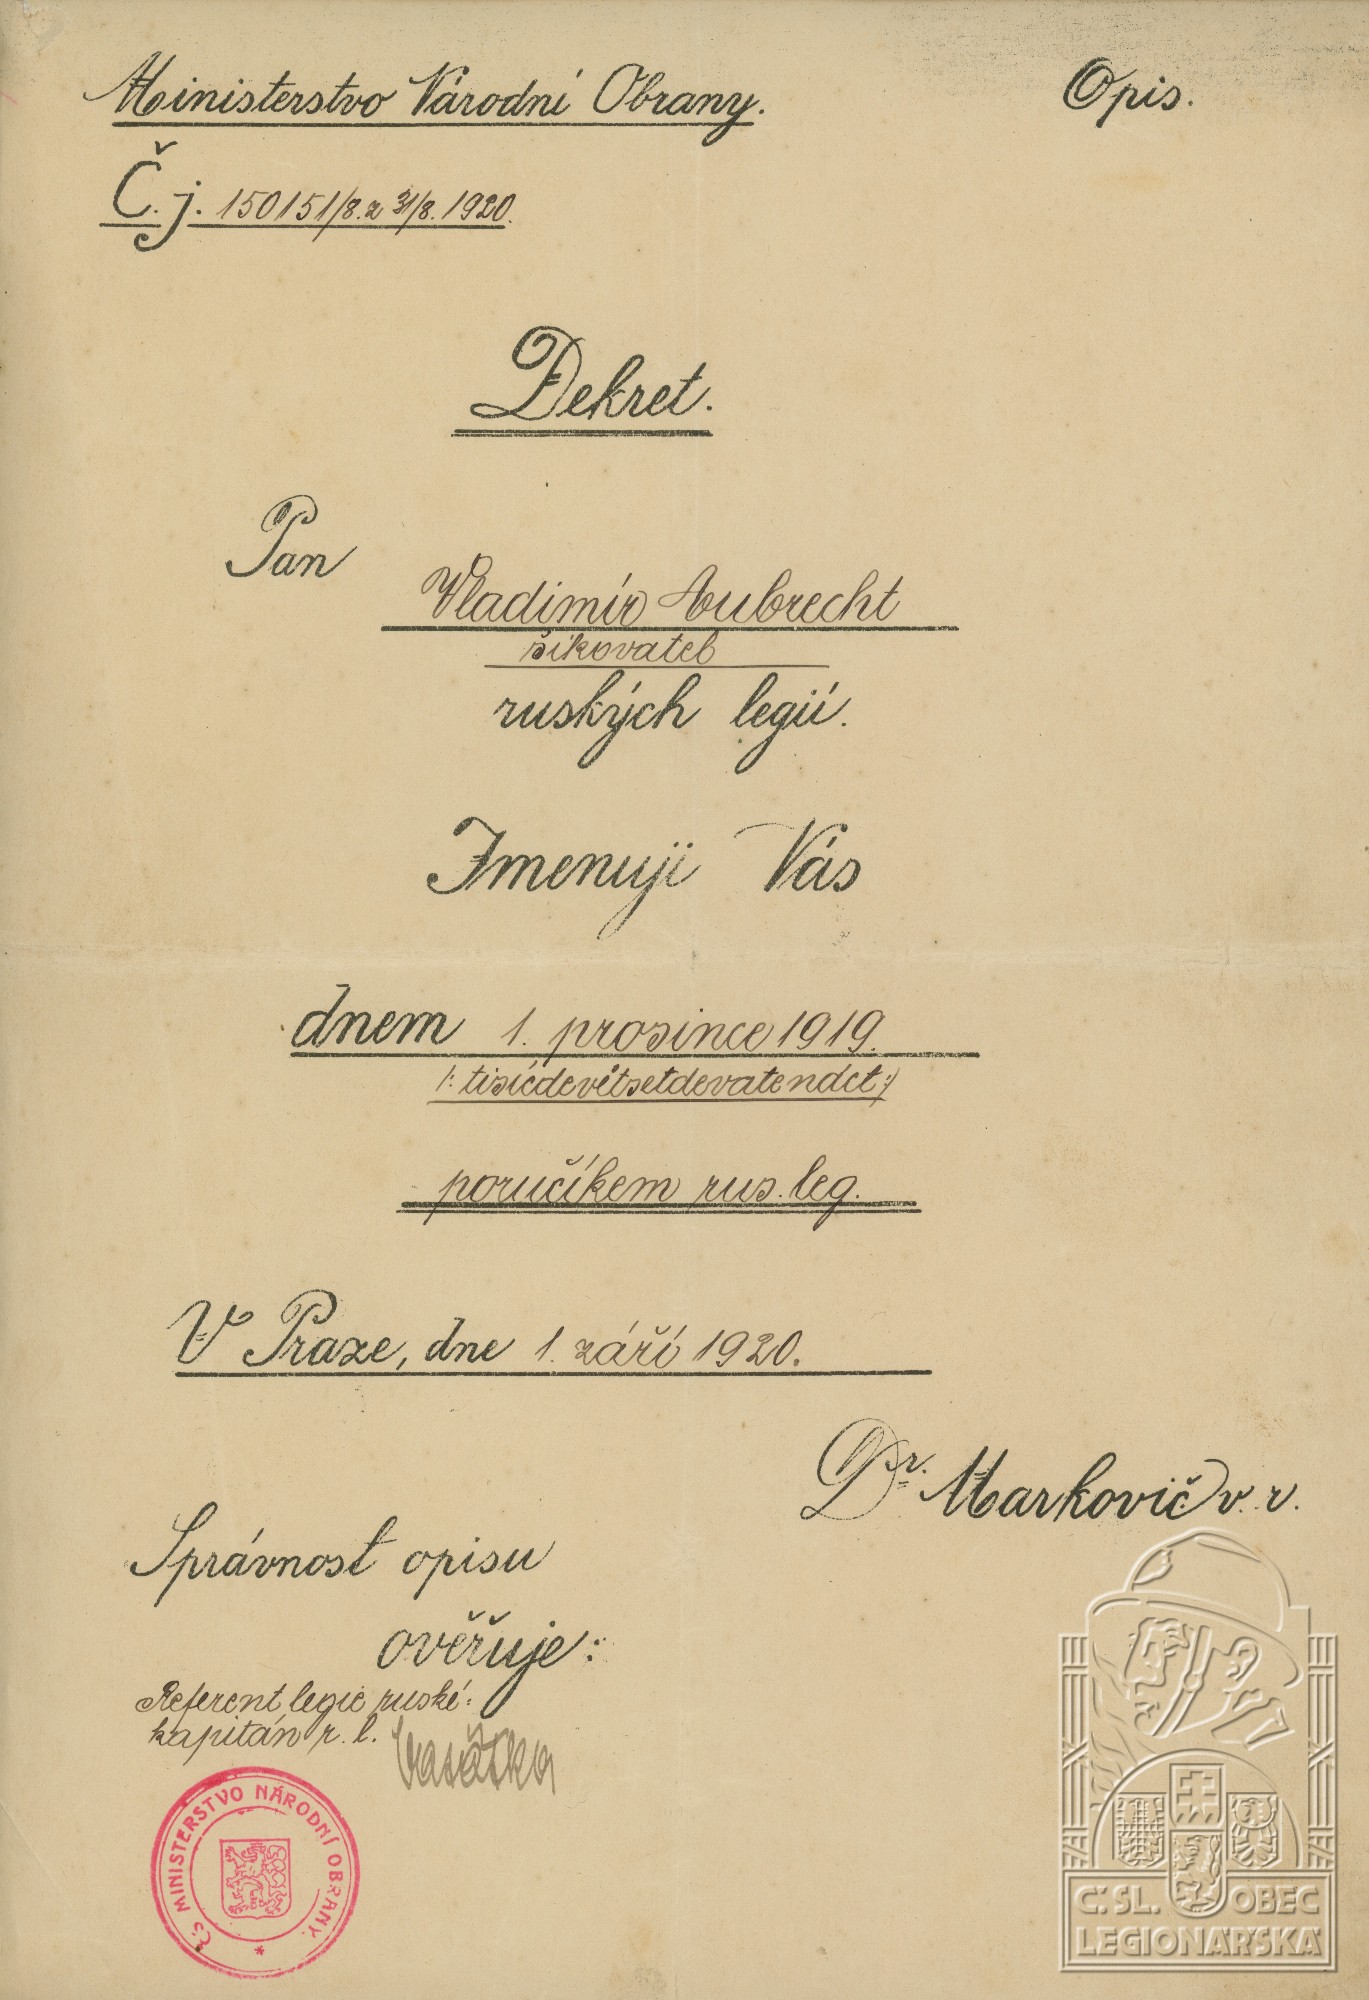 Ministerstvo Národní Obrany.
Opis.
Č. j. 150151/8. z 31/8. 1920.
Dekret.
Pan
Vladimír Aubrecht
šikovatel
ruských legií.
Jmenuji Vás
dnem 1. prosince 1919.
/: tisícdevětsetdevatenáct :/
poručíkem rus. leg.
V Praze, dne 1. září 1920.
Dr. Markovič v. r.
Správnost opisu
ověřuje:
Referent legie ruské:
kapitán r. l.
ČS MINISTERSTVO NÁRODNÍ OBRANY.
Č.SL. OBEC
LEGIONÁŘSKÁ